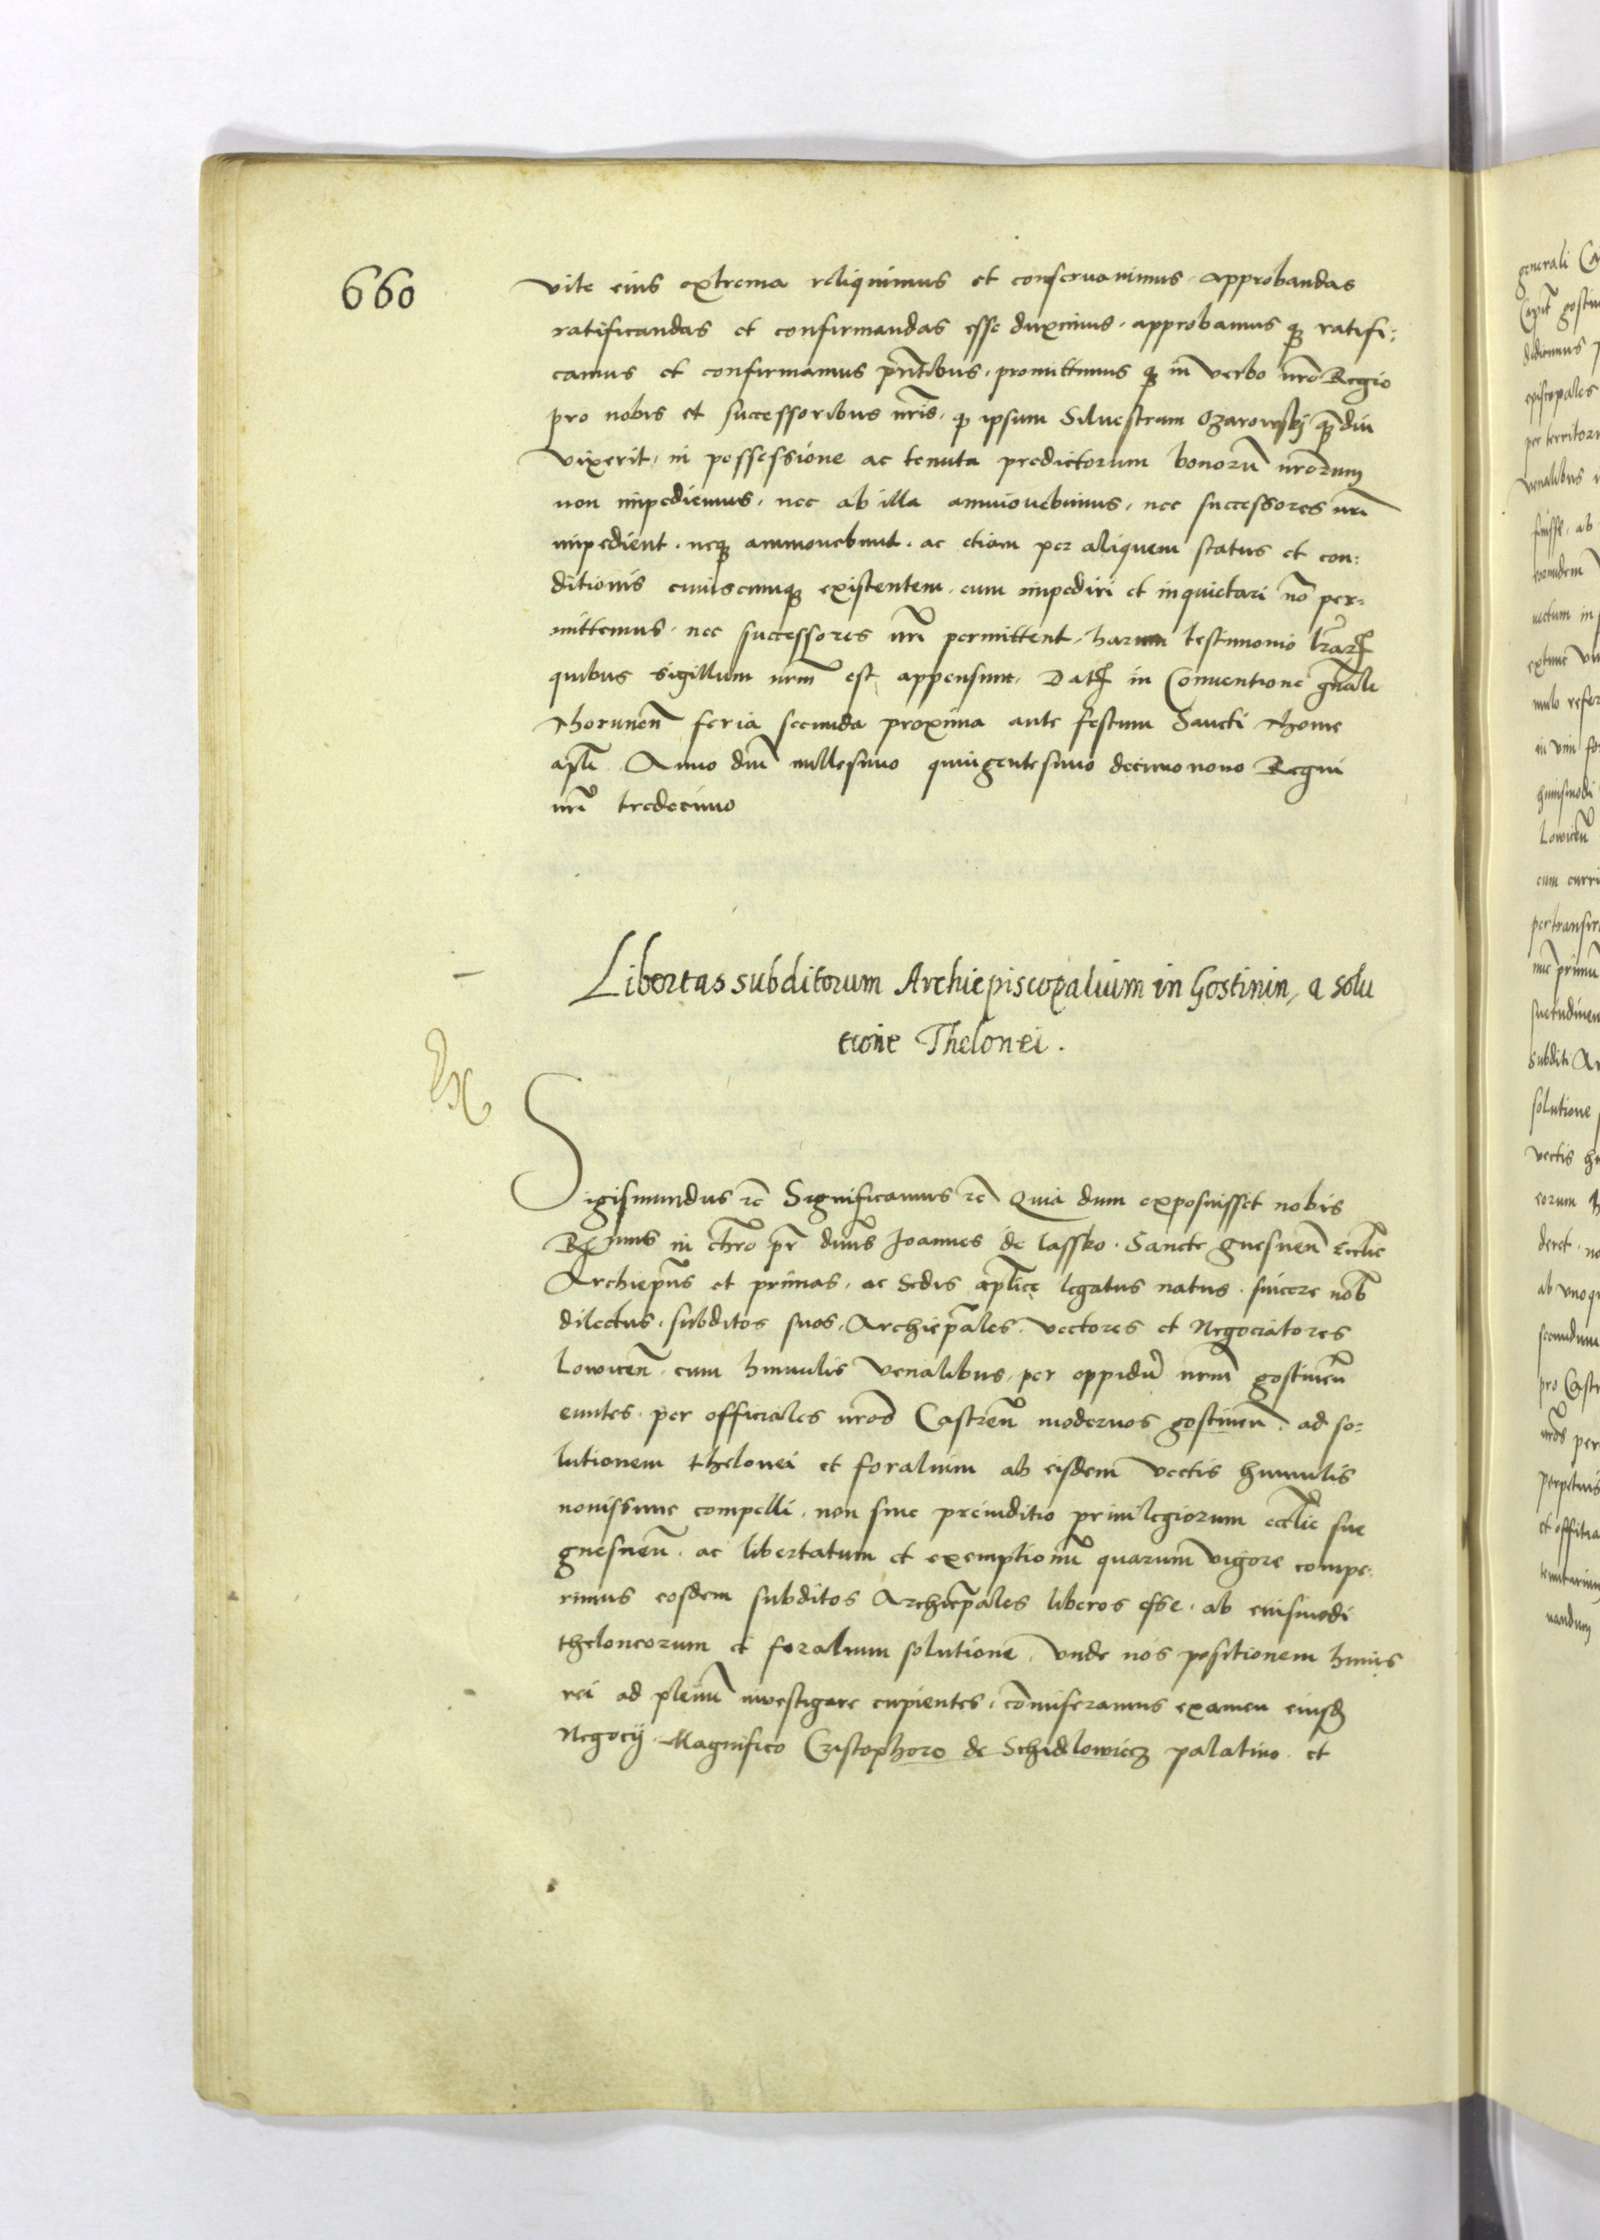 660
vite eius extrema reliquimus et conservavimus, approbandas
ratificandas et confirmandas esse duximus, approbamus q3 ratifi-
camus et confirmamus pñtibus, promittimus q3 in verbo nrõ Regio
pro nobis et successoribus nrĩs, q ipsum Silvestrum Ozarowskj q̃3 diu
vixerit, in possessione ac tenuta predictorum bonorũ nrõrum
non impediemus, nec ab illa ammovebimus, nec successores nrĩ
impedient, neq3 ammovebunt, ac etiam per aliquem status et con-
ditionis cuiuscumq3 existentem, eum impediri et inquietari nõ per-
mittemus, nec successores nrĩ permittent, harum testimonio lr̃ar
quibus sigillum nrm̃ est appensum, Dat in Conventione gñali
Thorunen̄ feria secunda proxima ante festum Sancti Thome
apl̃i Anno dnĩ millesimo quingentesimo decimonono Regni
nrĩ tredecimo
Libertas subditorum Archiepiscopalium in Gostinin, a solu
tione Thelonei.
Ex
Sigismundus rc̃ Significamus rc̃ Quia dum exposuisset nobis
R mus in chr̃o pr̃ dnũs Joannes de lassko, Sancte gnesnen̄ eccl̃ie
Archiep̃us et primas, ac Sedis ap̃lice legatus natus, sincere nob̃
dilectus, subditos suos, Archiep̃ales, vectores et Negociatores
Lowicen̄, cum humulis venalibus, per oppidũ nrm̃ gostinen̄
euntes, per officiales nrõs Castren̄ modernos gostinen̄, ad so-
lutionem thelonei et foralium ab eisdem vectis humulis
novissime compelli, non sine preiuditio privilegiorum eccl̃ie sue
gnesnen̄, ac libertatum et exemptionũ quarum vigore compe-
rimus eosdem subditos Archiep̃ales liberos esse, ab eiusmodi
theloneorum et foralium solutione, unde nos positionem huius
rei ad plenũ investigare cupientes, com̃iseramus examen eiusd
Negocij, Magnifico Cristophoro de Schidlowiecz palatino et
generali
gostin
episcopales
per territori
venalibus
fuisse, ab
vectum in
huiusmodi
Lowicen̄
cum
pertransir
subditi Ar
solutione
vectis
eorum
ab unoq
secundum
pro Castr
perpetuis
et offitia